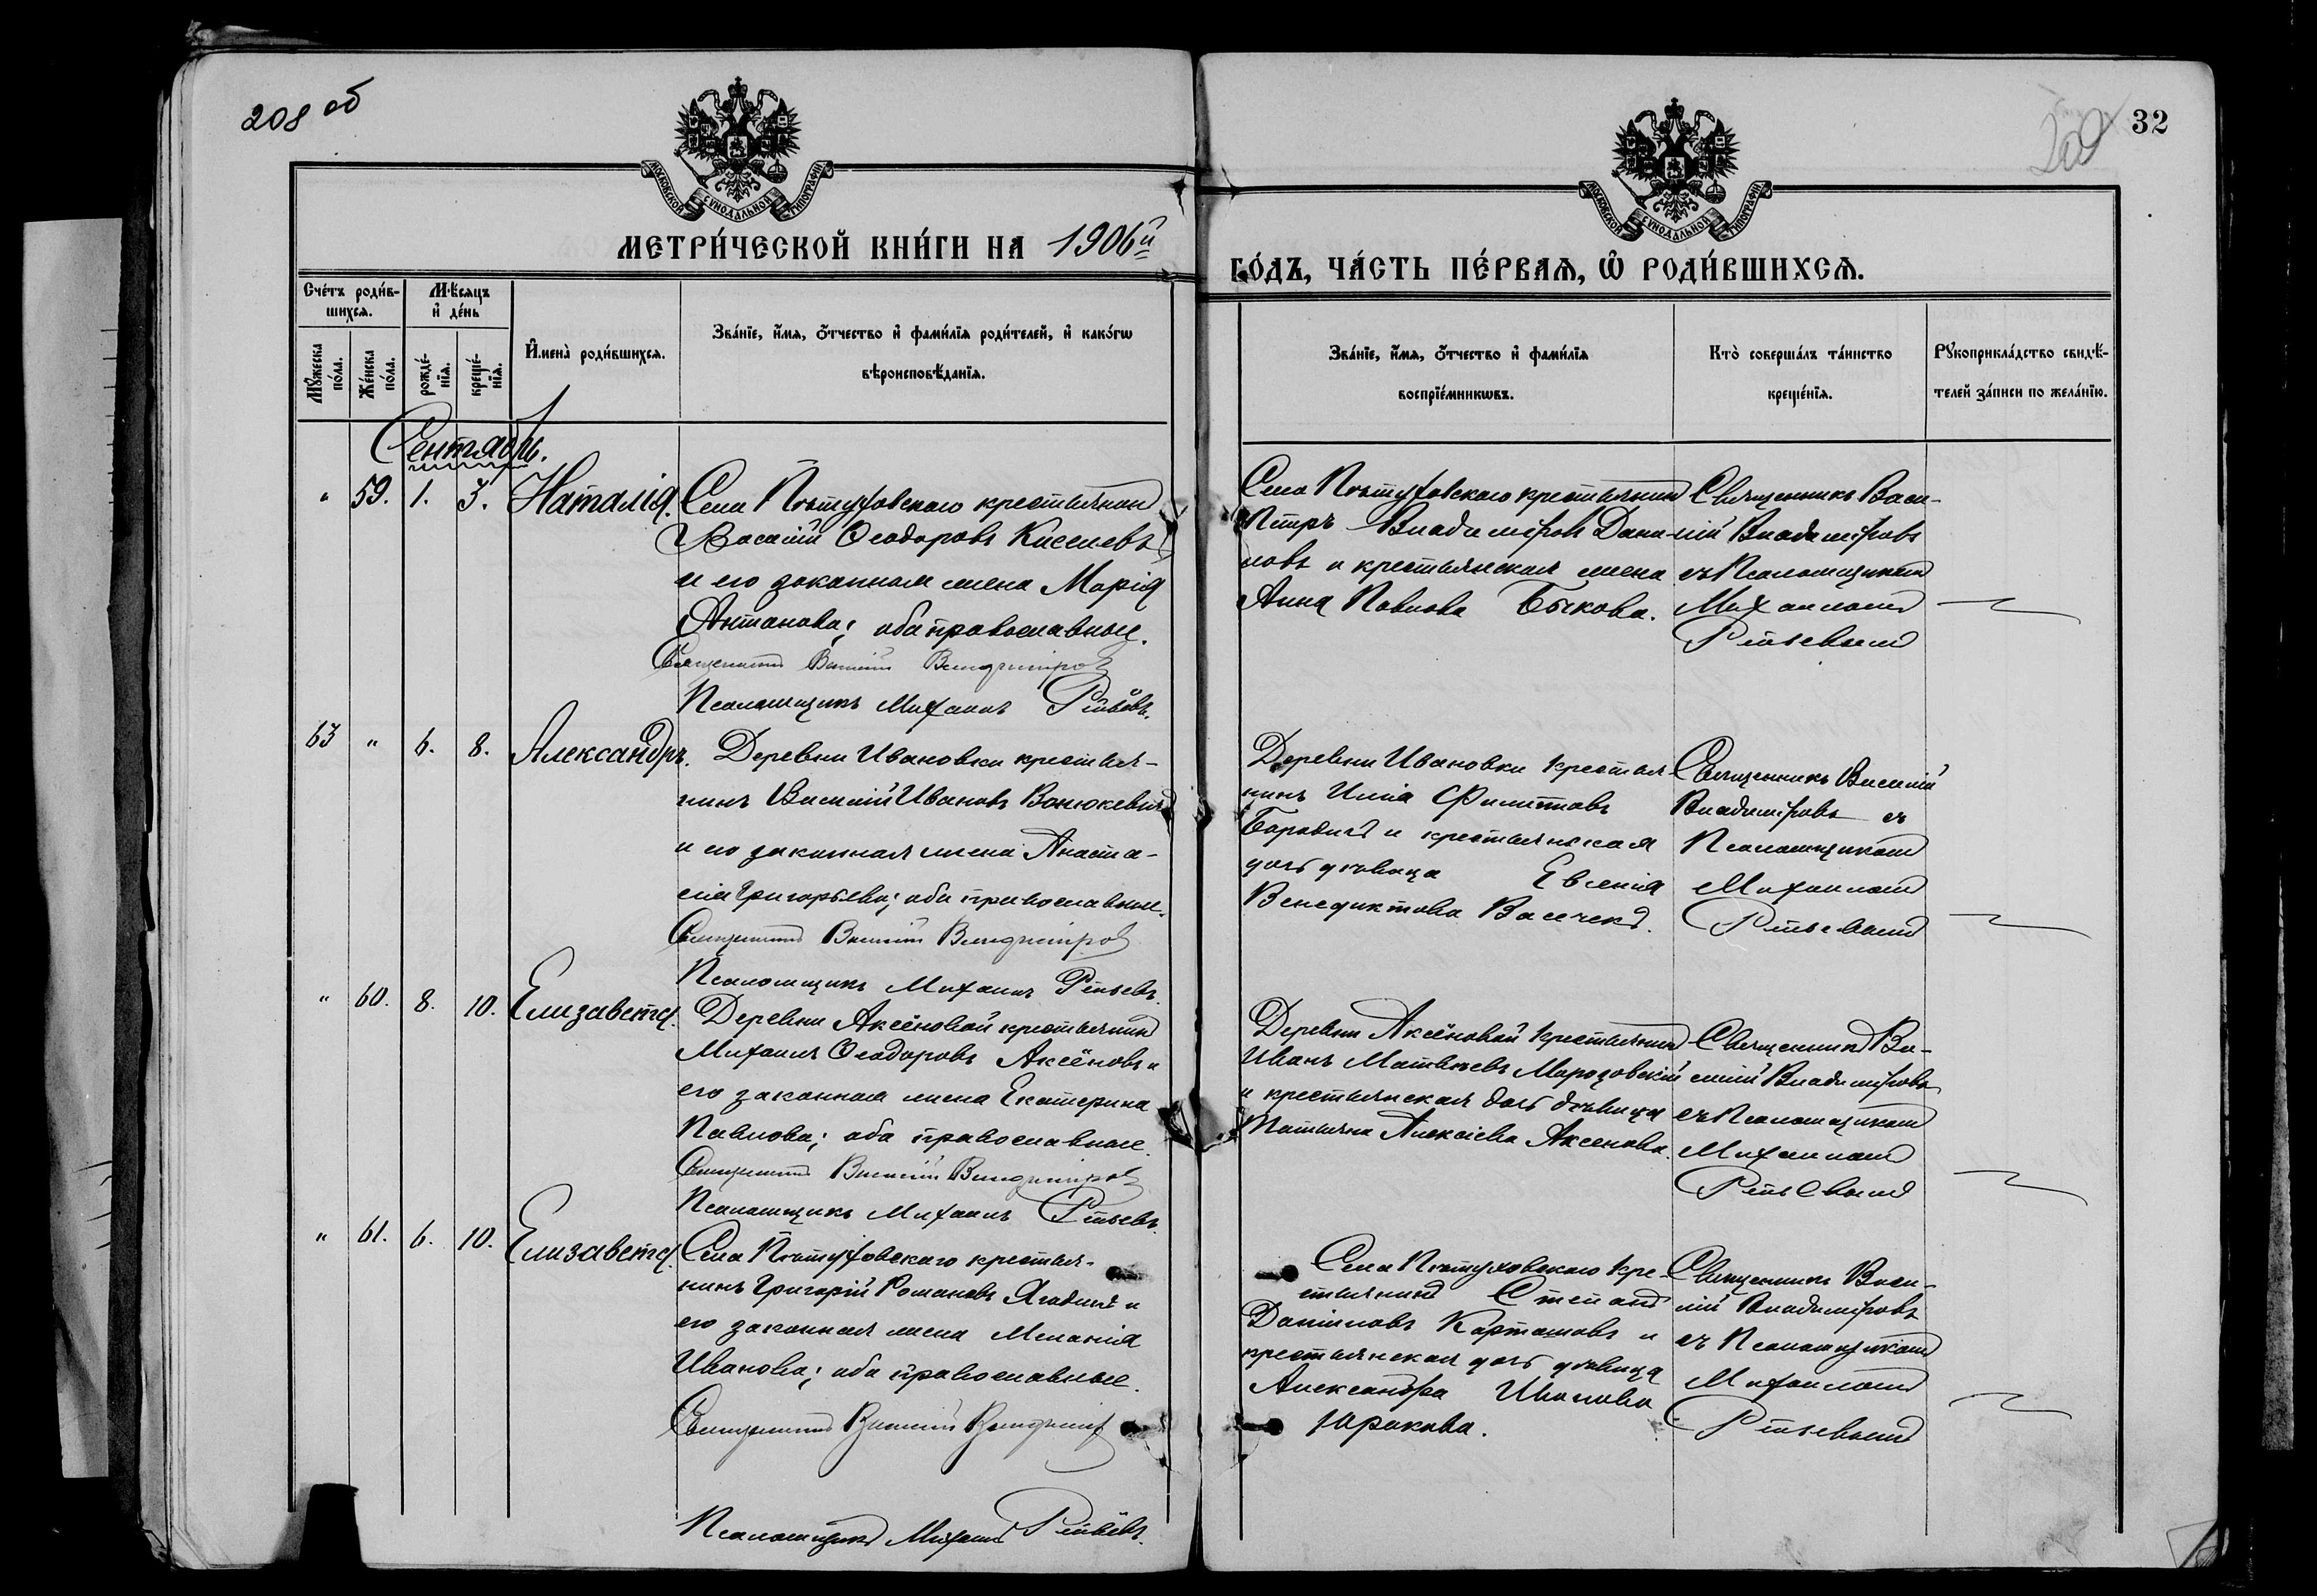 208 об
32
209
МОСКОВСКОЙ СУНОДАЛЬНОЙ ТИПОГРАФІИ
МОСКОВСКОЙ СУНОДАЛЬНОЙ ТИПОГРАФІИ
МЕТРИ́ЧЕСКОЙ КНИ́ГИ НА 1906й
ГО́ДЪ, ЧА́СТЬ ПЕ́РВАЯ, Ѡ҆ РОДИ́ВШИХСЯ.
Сче́тъ роди́в-
шихся.
Мѣ́сяцъ
и҆ де́нь
Мꙋ́жеска
по́ла.
Же́нска
по́ла.
рожде́-
нїя.
креще́-
нїя.
И҆мена̀ роди́вшихся.
Зва́нїе, и҆́мя, ѻ҆́тчество и҆ фами́лїя роди́телей, и҆ како́гѡ
вѣроисповѣ́данїя.
Зва́нїе, и҆́мя, ѻ҆́тчество и҆ фами́лїя
воспрїе́мникѡвъ.
Кто̀ соверша́лъ та́инство
креще́нїя.
Рꙋкоприкла́дство свидѣ́-
телей за́писи по жела́нїю.
Сентябрь.
" 59. 1. 3. Наталія.
Села Пѣтуховскаго крестьянин
Василій Ѳеодоровъ Киселевъ
и его законная жена Марія
Антонова; оба православные.
Священникъ Василій Владиміров
Псаломщикъ Михаилъ
Села Пѣтуховскаго крестьянин
Петръ Владиміровъ Дани-
ловъ и крестьянская жена
Анна Павлова Быкова.
Священникъ Васи-
лій Владиміровъ
съ Псаломщиком
Михаилом
63 " 6. 8. Александръ.
Деревни Ивановки крестья-
нинъ Василій Ивановъ Ванюкевич
и его законная жена Анаста-
сія Григорьева; оба православные.
Священникъ Василій Владиміров
Псаломщикъ Михаилъ
Деревни Ивановки крестья-
нинъ Илія Филиппов
Бородич и крестьянская
дочь дѣвица Евгенія
Венедиктова
Священникъ Василій
Владиміровъ съ
Псаломщиком
Михаилом
" 60. 8. 10. Елизавета.
Деревни Аксёновой крестьянин
Михаилъ Ѳеодоровъ Аксёновъ и
его законная жена Екатерина
Павлова; оба православные.
Священникъ Василій Владиміров
Псаломщикъ Михаилъ
Деревни Аксёновой крестьянин
Иванъ Матвѣевъ Морозовскій
и крестьянская дочь дѣвица
Татьяна Алексіева Аксенова.
Священникъ Ва-
силій Владиміровъ
съ Псаломщиком
Михаилом
" 61. 6. 10. Елизавета.
Села Пѣтуховскаго крестья-
нинъ Григорій Романовъ и
его законная жена Меланія
Иванова; оба православные.
Священникъ Василій Владимір
Псаломщикъ Михаилъ
Села Пѣтуховскаго кре-
стьянинъ Степанъ
Даниловъ Карташовъ и
крестьянская дочь дѣвица
Александра Иванова
Юракова.
Священникъ Васи-
лій Владиміровъ
съ Псаломщиком
Михаилом